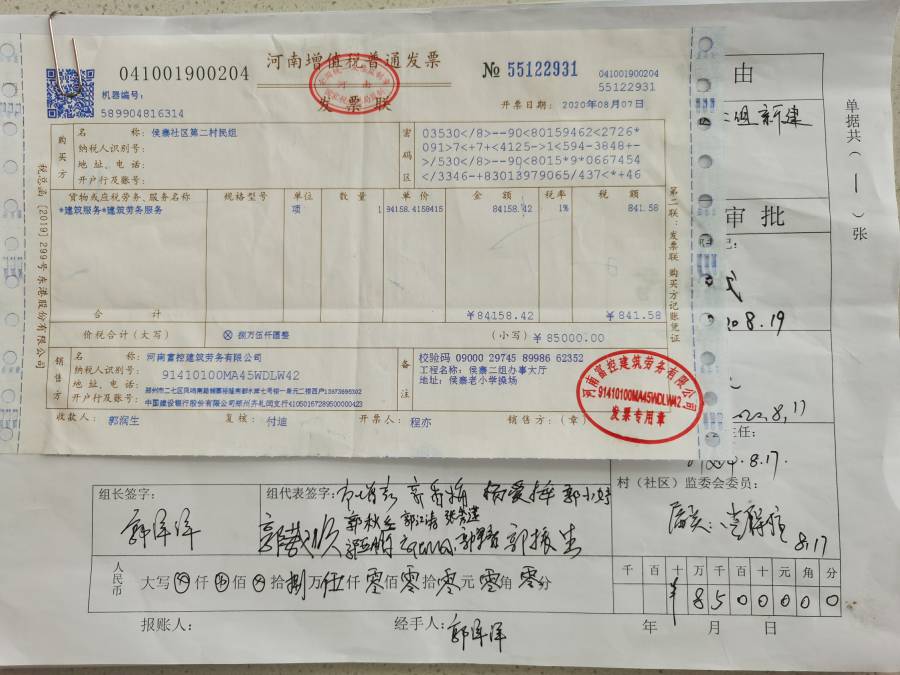 河南增值税普通发票
041001900204
发票联
№ 55122931
041001900204
55122931
机器编号:
589904816314
开票日期: 2020年08月07日
购买方
名 称: 侯寨社区第二村民组
纳税人识别号:
地 址、电 话:
开户行及账号:
密码区
03530</8>--90<80159462<2726*
091>7<+7+<4125->1<594-3848+-
>/530</8>--9Q<8015*9*0667454
</3346-+83013979065/437<*+46
货物或应税劳务、服务名称 规格型号 单位 数 量 单 价 金 额 税率 税 额
*建筑服务*建筑劳务服务 项 1 94158.4158415 84158.42 1% 841.58
合 计 ¥84158.42 ¥841.58
价税合计（大写） ⊗ 捌万伍仟圆整 （小写） ¥ 85000.00
销售方
名 称: 河南富控建筑劳务有限公司
纳税人识别号: 91410100MA45WDLW42
地 址、电 话:
开户行及账号:
备注
校验码 09000 29745 89986 62352
工程名称: 侯寨二组办事大厅
地址: 侯寨老小学操场
收款人: 郭润生 复核: 付迪 开票人: 程亦 销售方:（章）
河南富控建筑劳务有限公司
91410100MA45WDLW42
发票专用章
税总函 [2019] 299号 东港股份有限公司
第二联: 发票联 购买方记账凭证
由
二组新建
单据共（一）张
审批
8.19
8.17
主任:
8.17.
村（社区）监委会委员:
8.17
组长签字:
组代表签字:
人民币
大写 ⊗仟⊗佰⊗拾捌万伍仟零佰零拾零元零角零分
千 百 十 万 千 百 十 元 角 分
¥ 8 5 0 0 0 0 0
报账人:
经手人:
年 月 日